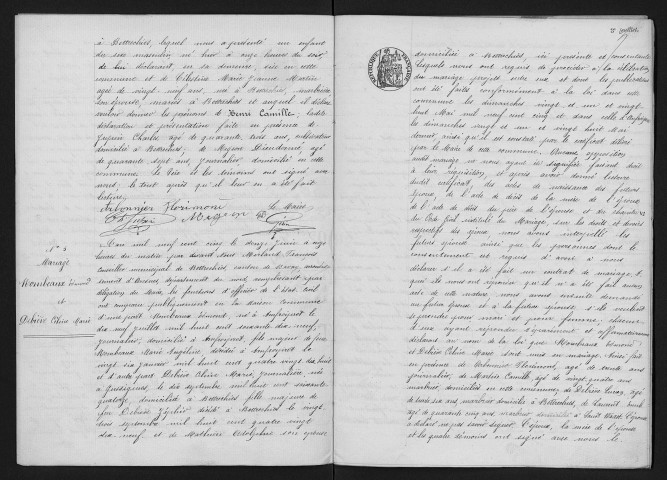 à Bettrechies, lequel nous a présenté un enfant
du sexe masculin né hier à onze heures du soir
de lui déclarant, en sa demeure, sise en cette
commune et de Marie Jeanne Martin
âgée de vingt cinq ans, née à Bettrechies
son épouse, mariés à Bettrechies et auquel il déclare
vouloir donner les prénoms de Henri Camille; ladite
déclaration et présentation faite en présence de
Charles âgé de quarante trois ans, cultivateur
domicilié à Bettrechies; de Dieudonné, âgé
de quarante sept ans, journalier domicilié en cette
commune. Le père et les témoins ont signé avec
nous; le tout après qu'il leur en a été fait
lecture.
Florimond Le Maire
N° 4
Mariage
Edmond
et
Debiève Célina Marie
L'an mil neuf cent cinq le douze Juin à onze
heures du matin par devant nous François
Conseiller municipal de Bettrechies canton de Bavay
département du nord remplissant par
délégation du Maire, les fonctions d'officier de l'état civil
ont comparu publiquement en la maison commune
d'une part Edmond, né à Amfroipret le
dix neuf juillet mil huit cent soixante dix neuf,
journalier, domicilié à Amfroipret, fils majeur de feue
Marie Angéline, décédée à Amfroipret le
vingt six janvier mil huit cent quatre vingt dix huit
et d'autre part Debiève Célina Marie, journalière, née
à Gussignies, le dix septembre mil huit cent soixante
quatorze, domiciliée à Bettrechies fille majeure de
feu Debiève Zéphir décédé à Bettrechies le vingt
trois septembre mil huit cent quatre vingt
dix neuf et de Adolphine son épouse
domiciliée à Bettrechies, ici présente et consentante
lesquels nous ont requis de procéder à la célébration
du mariage projeté entre eux et dont les publications
ont été faites conformément à la loi dans cette
commune les dimanches vingt et un et vingt
huit Mai mil neuf cent cinq et dans celle d'Amfroipret
les dimanches vingt et un et vingt huit Mai
dernier ainsi qu'il est constaté par le certificat délivré
par le Maire de cette commune. Aucune opposition
audit mariage ne nous ayant été signifiée faisant droit
à leur réquisition, et après avoir donné lecture
dudit certificat, des actes de naissance des futurs
époux, de l'acte de décès de la mère de l'époux
de l'acte de décès du père de l'épouse et du chapitre six
du Code Civil intitulé du Mariage, sur les droits et devoirs
respectifs des époux, nous avons interpellé les
futurs époux ainsi que les personnes dont le
consentement est requis d'avoir à nous
déclarer s'il a été fait un contrat de mariage,
elles nous ont répondu qu'il n'a été fait aucun
acte de cette nature, nous avons ensuite demandé
au futur époux et à la future épouse s'ils veulent
se prendre pour mari et pour femme; chacun
d'eux ayant répondu séparément et affirmativement
déclarons au nom de la loi que Edmond
et Debiève Célina Marie sont unis en mariage. Ainsi fait
en présence de Florimond, âgé de trente ans
journalier, de Camille âgé de vingt quatre ans
marbrier, domiciliés en cette commune, de Debiève
âgé de trente six ans, marbrier domicilié à Bettrechies, de
âgé de quarante cinq ans, domicilié à Saint Waast. L'épouse
a déclaré ne pas savoir signer. L'époux, la mère de l'épouse
et les quatre témoins ont signé avec nous le